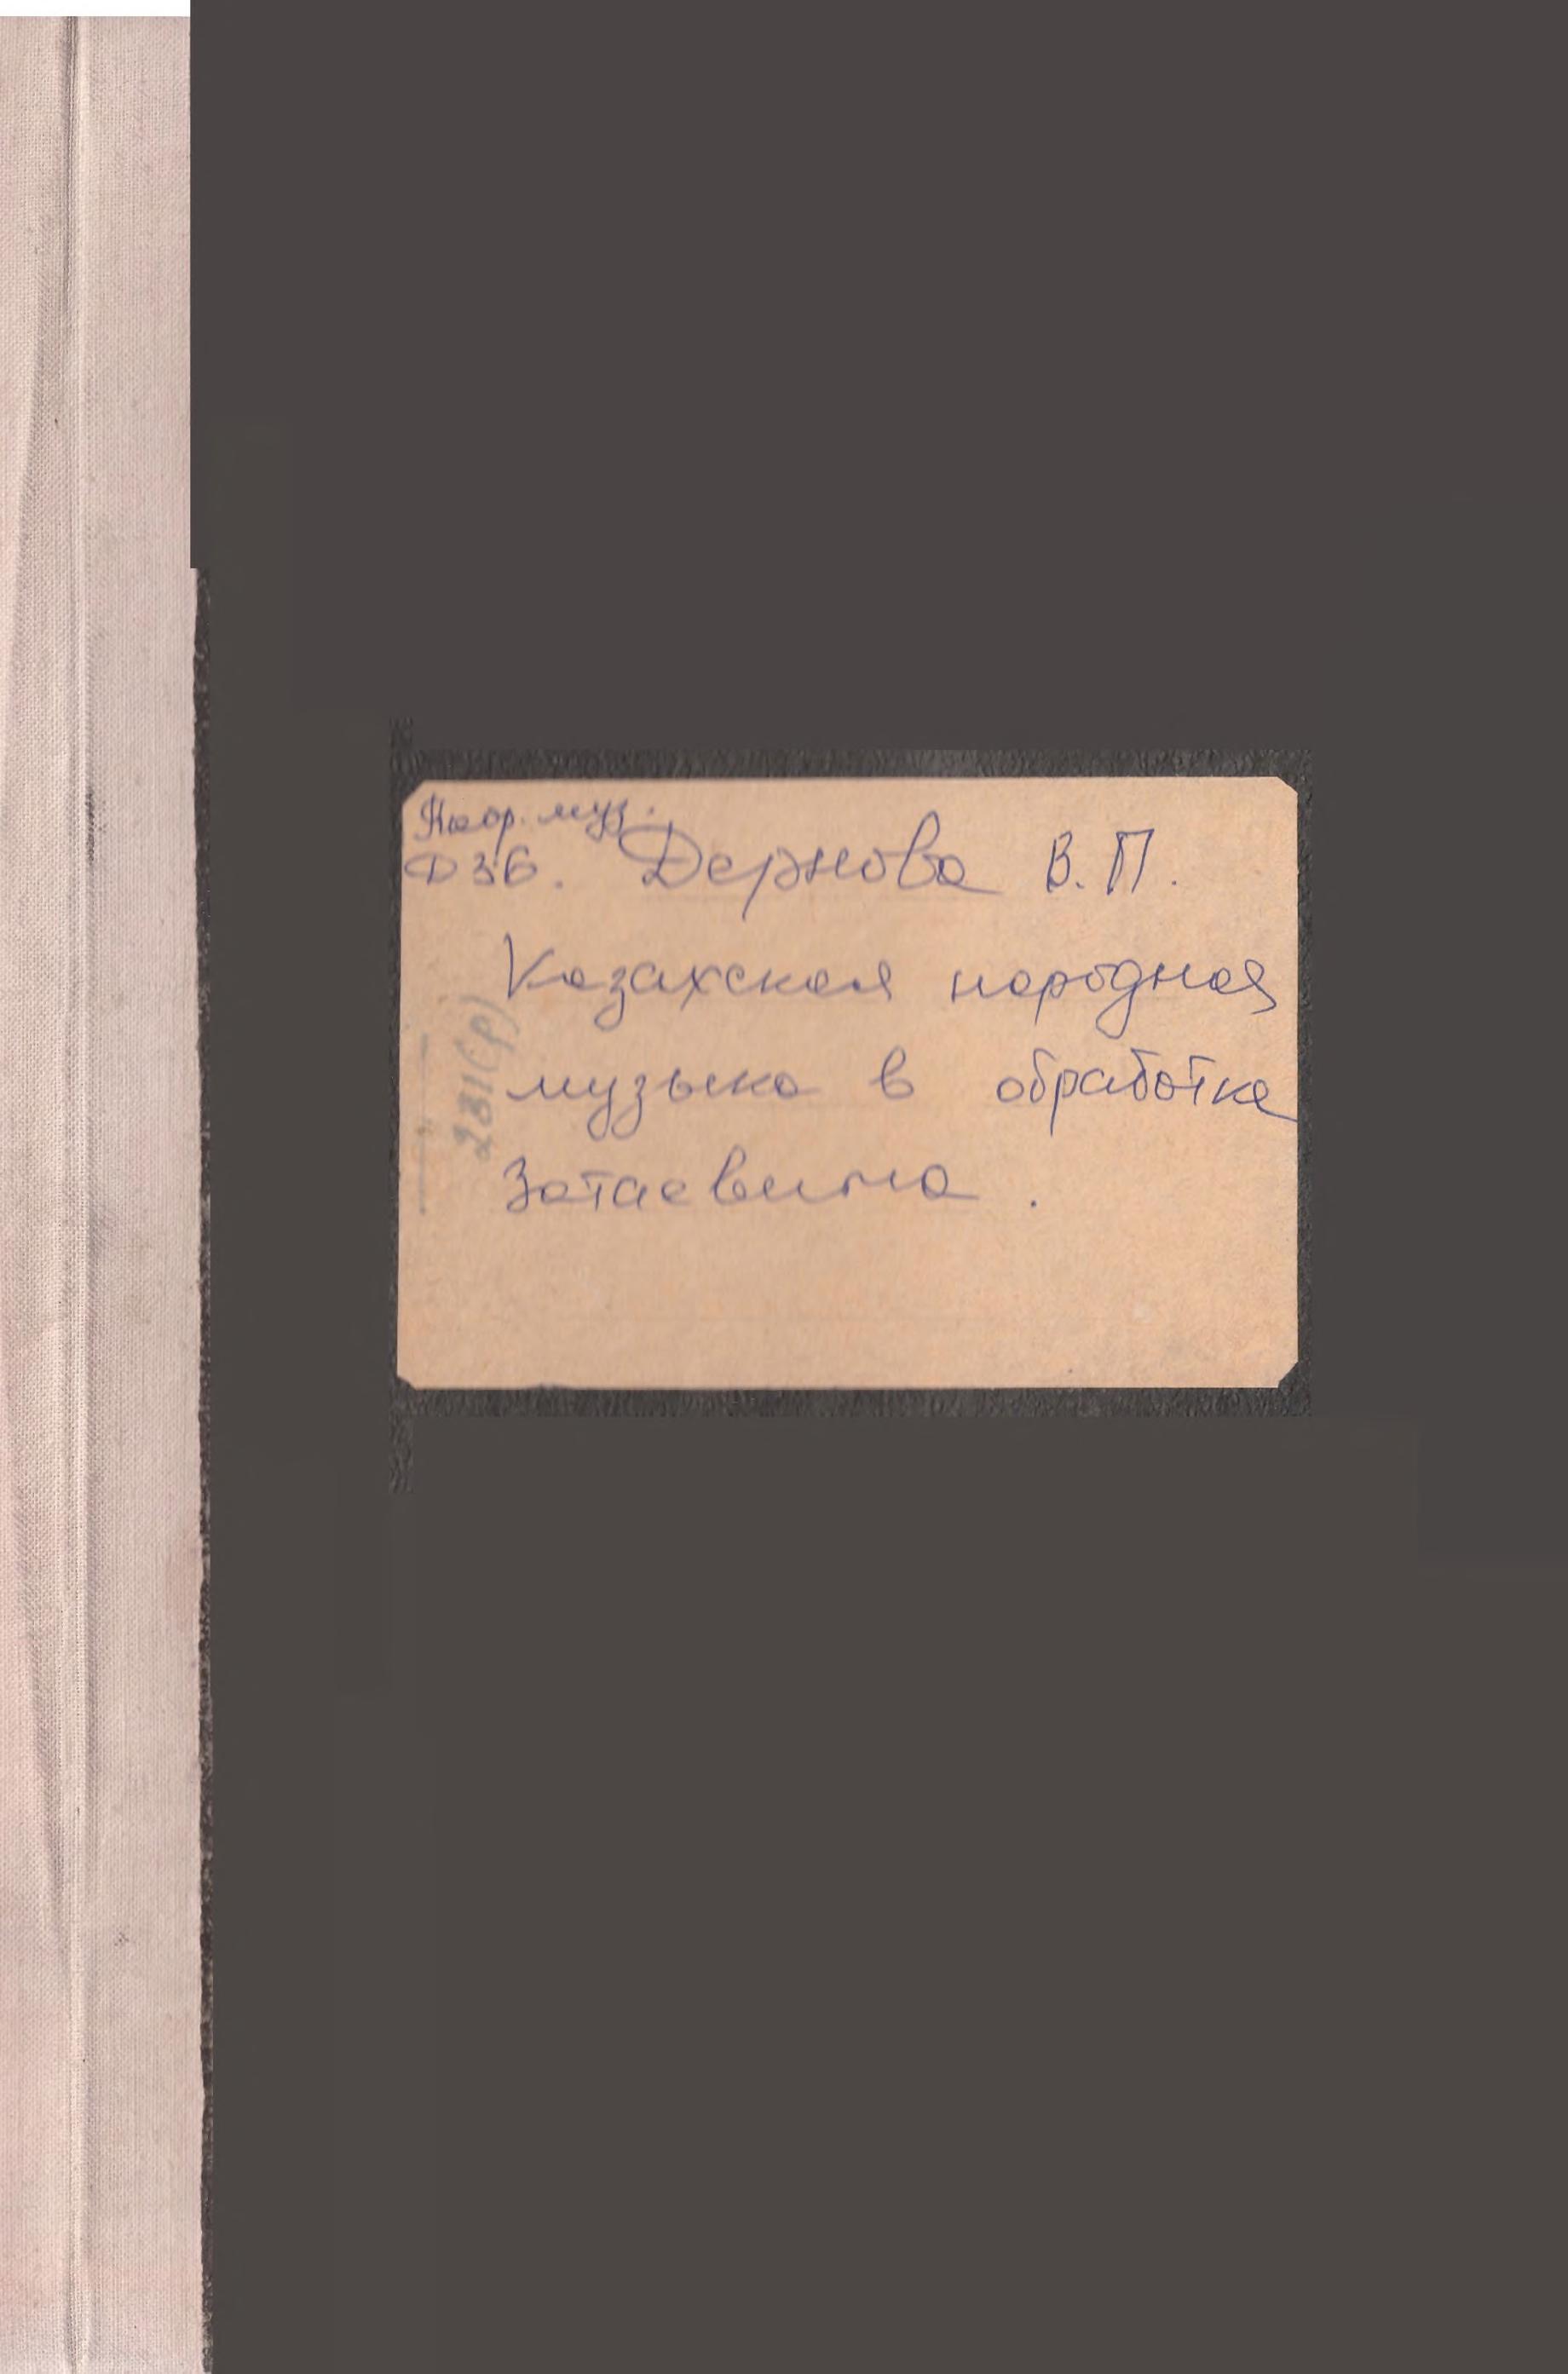 муз.
Д36. Дернова В.П.
Казахская народная
музыка в обработке
Затаевича.
281(р)